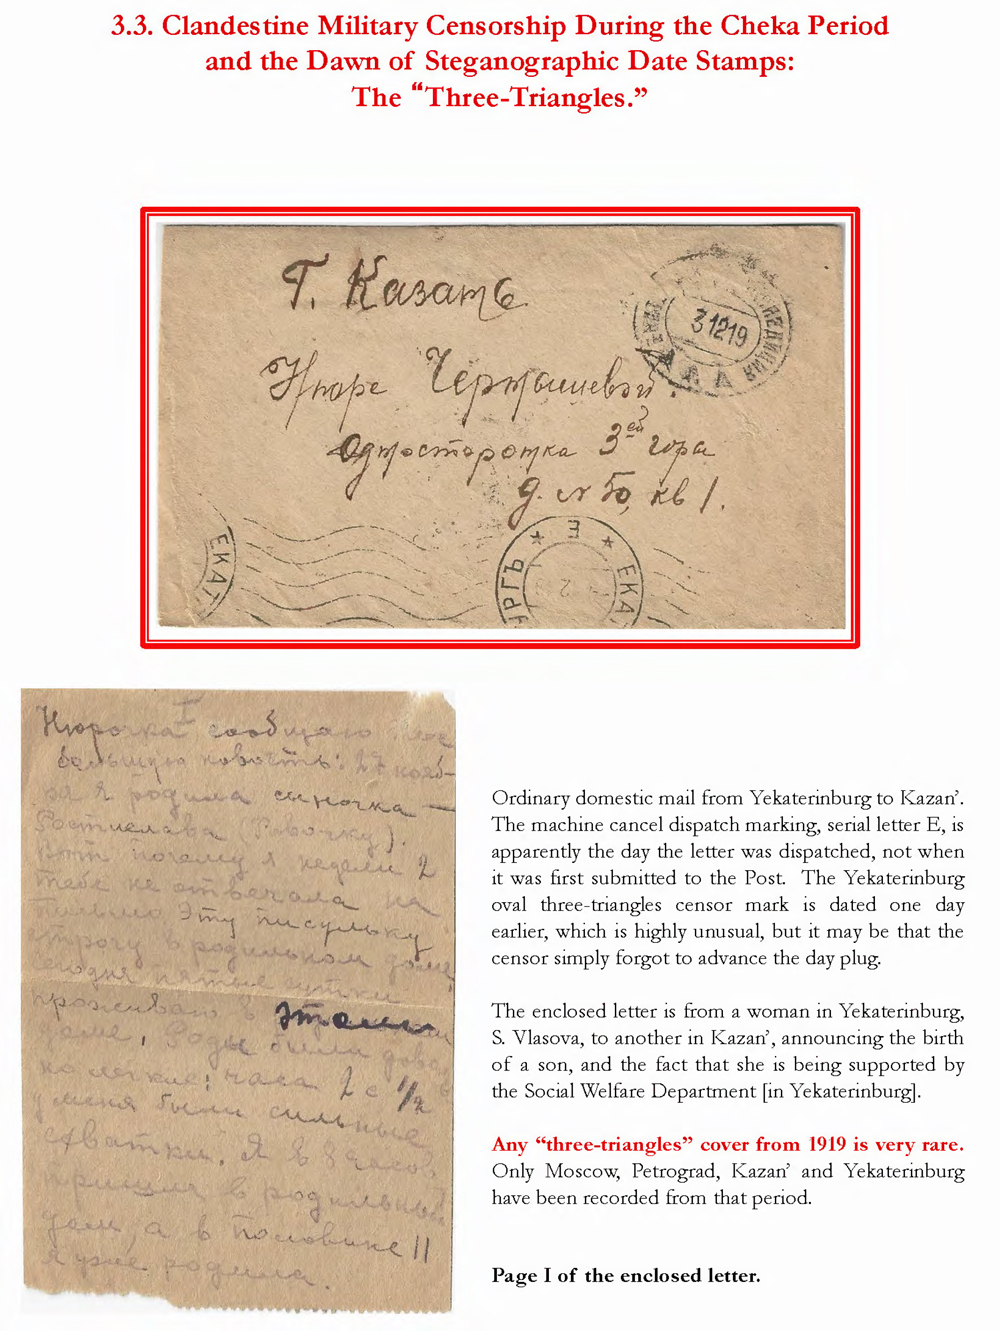 3.3. Clandestine Military Censorship During the Cheka Period
and the Dawn of Steganographic Date Stamps:
The “Three-Triangles.”
Г. Казань
Нюре Чернышевой.
Односторонка 3ей гора
д. № 50, кв 1.
31219
ЕКАТ
УРГЪ * Е * ЕКА
I
Нюрочка сообщаю
большую новость: 27 нояб-
ря я родила сыночка —
Ростислава (Ровочку).
Вот почему я недели 2
тебе не отвечала на
письмо Эту писульку
строчу в родильном доме
сегодня пятые сутки
проживаю в этом
доме. Роды были доволь
но легкие: часа 2 с 1/2
у меня были сильные
схватки. Я в 8 часов
пришла в родильный
дом, а в половине 11
я уже родила.
Ordinary domestic mail from Yekaterinburg to Kazan’.
The machine cancel dispatch marking, serial letter E, is
apparently the day the letter was dispatched, not when
it was first submitted to the Post. The Yekaterinburg
oval three-triangles censor mark is dated one day
earlier, which is highly unusual, but it may be that the
censor simply forgot to advance the day plug.
The enclosed letter is from a woman in Yekaterinburg,
S. Vlasova, to another in Kazan’, announcing the birth
of a son, and the fact that she is being supported by
the Social Welfare Department [in Yekaterinburg].
Any “three-triangles” cover from 1919 is very rare.
Only Moscow, Petrograd, Kazan’ and Yekaterinburg
have been recorded from that period.
Page I of the enclosed letter.